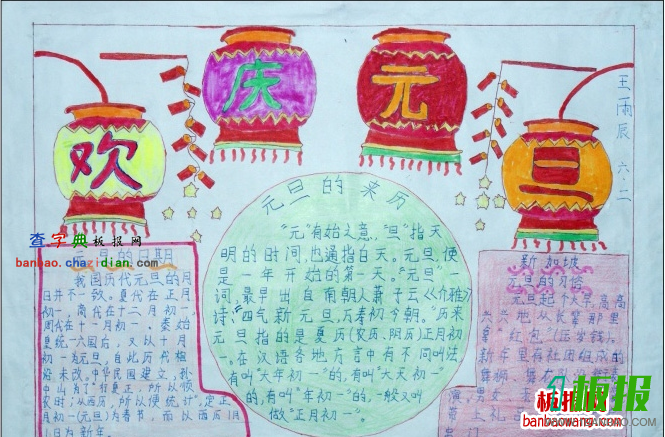 欢
庆
元
旦
王雨辰 六.二
查字典板报网
banbao.chazidian.com
元旦的来历
"元"有始之意，"旦"指天
明的时间，也通指白天。元旦，便
是一年开始的第一天。"元旦"一
词，最早出自南朝人萧子云《介雅》
诗："四气新元旦，万寿初今朝。"历来
元旦指的是夏历(农历、阴历)正月初
一。在汉语各地方言中有不同叫法，
有叫"大年初一"的，有叫"大天初一"
的，有叫"年初一"的，一般又叫
做"正月初一"。
我国历代元旦的月
日并不一致。夏代在正月
初一，商代在十二月初一，
周代在十一月初一，秦始
皇统一六国后，又以十月
初一为元旦，自此历代相
沿未改。中华民国建立，孙
中山为了"行夏正，所以顺
农时；从西历，所以便统计"，定正
月初一(元旦)为春节，而以西历1月
1日为新年。
新加坡
元旦的习俗
元旦起个大早，高高
兴兴地从长辈那里
拿"红包"(压岁钱)。
新年里有社团组成的
舞狮、舞
男女
板报
板报网
banbaowang.com